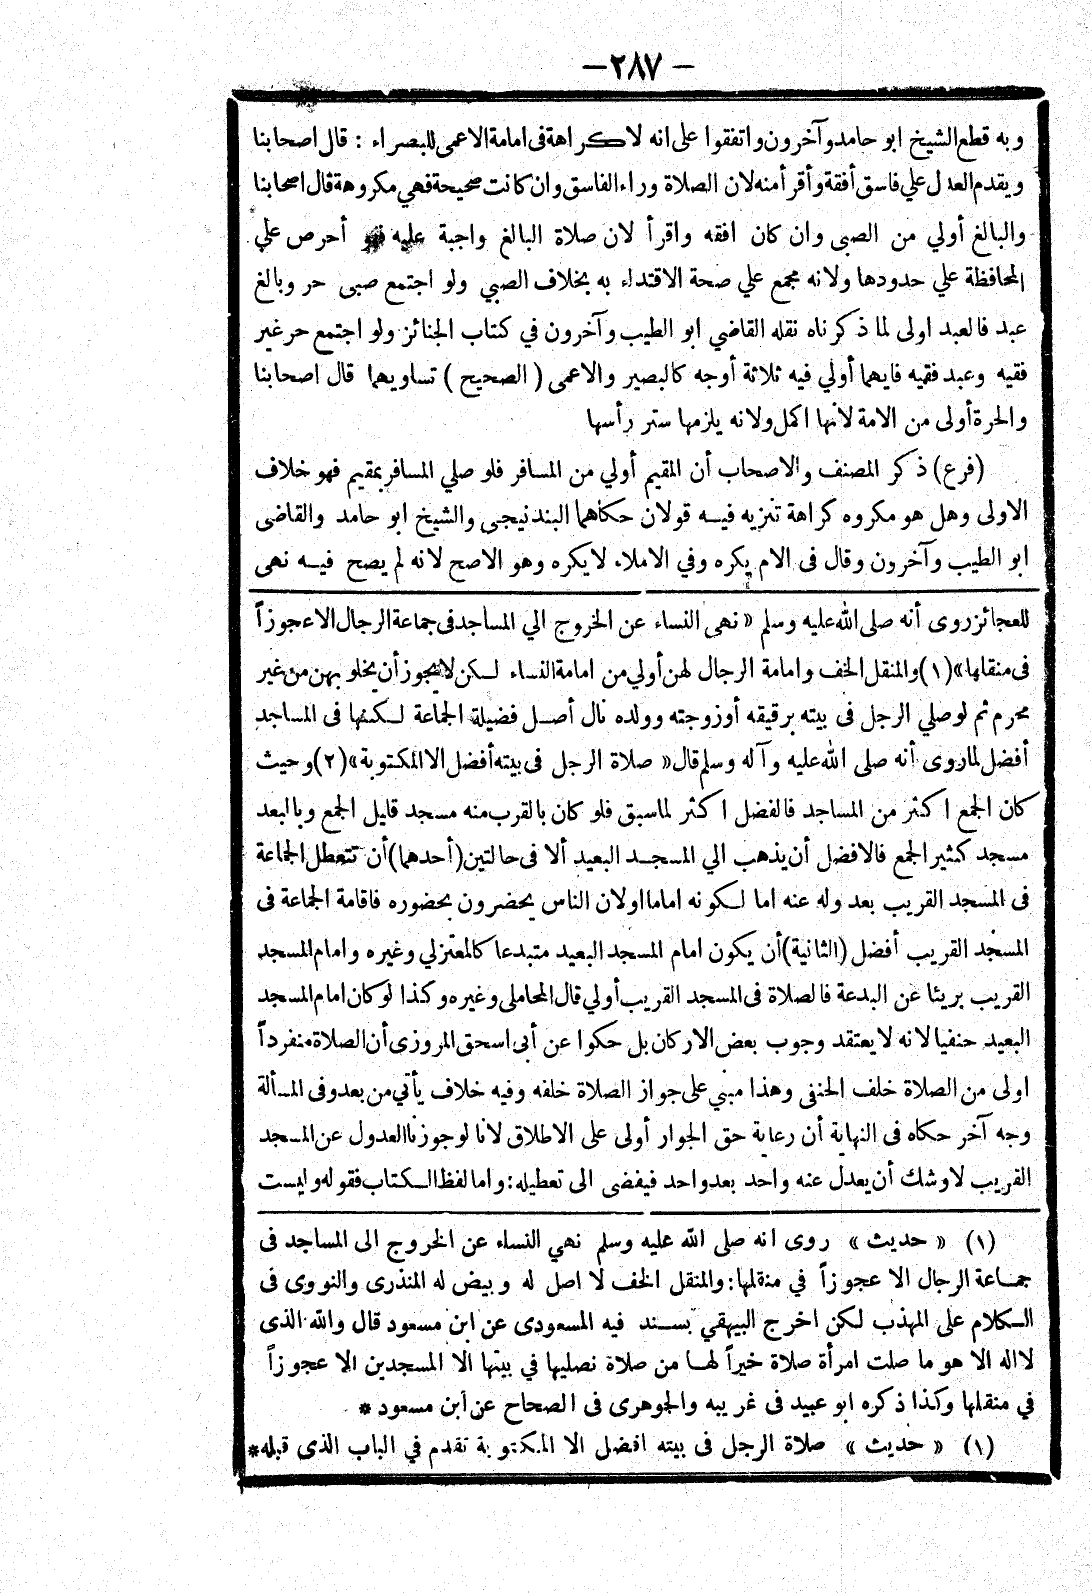 — ٢٨٧ —
وبه قطع الشيخ ابو حامد وآخرون واتفقوا على انه لا كراهة فى امامة الاعمى للبصراء : قال اصحابنا
ويقدم العدل علي فاسق أفقة وأقرأ منه لان الصلاة وراء الفاسق وان كانت صحيحة فهي مكروهة قال اصحابنا
والبالغ أولي من الصبى وان كان افقه واقرأ لان صلاة البالغ واجبة عليه فهو أحرص علي
المحافظة علي حدودها ولانه مجمع علي صحة الاقتداء به بخلاف الصبي ولو اجتمع صبى حر وبالغ
عبد فالعبد اولى لما ذكرناه نقله القاضي ابو الطيب وآخرون في كتاب الجنائز ولو اجتمع حر غير
فقيه وعبد فقيه فايهما أولي فيه ثلاثة أوجه كالبصير والاعمى ( الصحيح ) تساويهما قال اصحابنا
والحرة أولى من الامة لانها اكمل ولانه يلزمها ستر رأسها
(فرع) ذكر المصنف والاصحاب أن المقيم أولي من المسافر فلو صلي المسافر بمقيم فهو خلاف
الاولى وهل هو مكروه كراهة تنزيه فيه قولان حكاهما البندنيجى والشيخ ابو حامد والقاضى
ابو الطيب وآخرون وقال فى الام يكره وفي الاملاء لا يكره وهو الاصح لانه لم يصح فيه نهى
للعجائز روى أنه صلى الله عليه وسلم « نهى النساء عن الخروج الي المساجد فى جماعة الرجال الا عجوزاً
فى منقلها » (١) والمنقل الخف وامامة الرجال لهن أولي من امامة النساء لكن لا يجوز أن يخلو بهن من غير
محرم ثم لو صلي الرجل فى بيته برقيقه أو زوجته وولده نال أصل فضيلة الجماعة لكنها فى المساجد
أفضل لما روى أنه صلى الله عليه وآله وسلم قال « صلاة الرجل فى بيته أفضل الا المكتوبة » (٢) وحيث
كان الجمع اكثر من المساجد فالفضل اكثر لما سبق فلو كان بالقرب منه مسجد قليل الجمع وبالبعد
مسجد كثير الجمع فالافضل أن يذهب الي المسجد البعيد ألا فى حالتين (أحدهما) أن تتعطل الجماعة
فى المسجد القريب بعدوله عنه اما لكونه اماما اولان الناس يحضرون بحضوره فاقامة الجماعة فى
المسجد القريب أفضل (الثانية) أن يكون امام المسجد البعيد متبدعا كالمعتزلي وغيره وامام المسجد
القريب بريئا عن البدعة فالصلاة فى المسجد القريب أولي قال المحاملى وغيره وكذا لو كان امام المسجد
البعيد حنفيا لانه لا يعتقد وجوب بعض الاركان بل حكوا عن أبى اسحق المروزى أن الصلاة منفرداً
اولى من الصلاة خلف الحنفى وهذا مبني على جواز الصلاة خلفه وفيه خلاف يأتي من بعد وفى المسألة
وجه آخر حكاه فى النهاية أن رعاية حق الجوار أولى على الاطلاق لانا لو جوزنا العدول عن المسجد
القريب لاوشك أن يعدل عنه واحد بعد واحد فيفضى الى تعطيله : واما لفظ الكتاب فقوله وليست
(١) « حديث » روى انه صلى الله عليه وسلم نهي النساء عن الخروج الى المساجد فى
جماعة الرجال الا عجوزاً في منقلها : والمنقل الخف لا اصل له وبيض له المنذرى والنووى فى
الكلام على المهذب لكن اخرج البيهقي بسند فيه المسعودى عن ابن مسعود قال والله الذى
لا اله الا هو ما صلت امرأة صلاة خيراً لها من صلاة تصليها في بيتها الا المسجدين الا عجوزاً
في منقلها وكذا ذكره ابو عبيد فى غريبه والجوهرى فى الصحاح عن ابن مسعود *
(١) « حديث » صلاة الرجل فى بيته افضل الا المكتوبة تقدم في الباب الذى قبله *